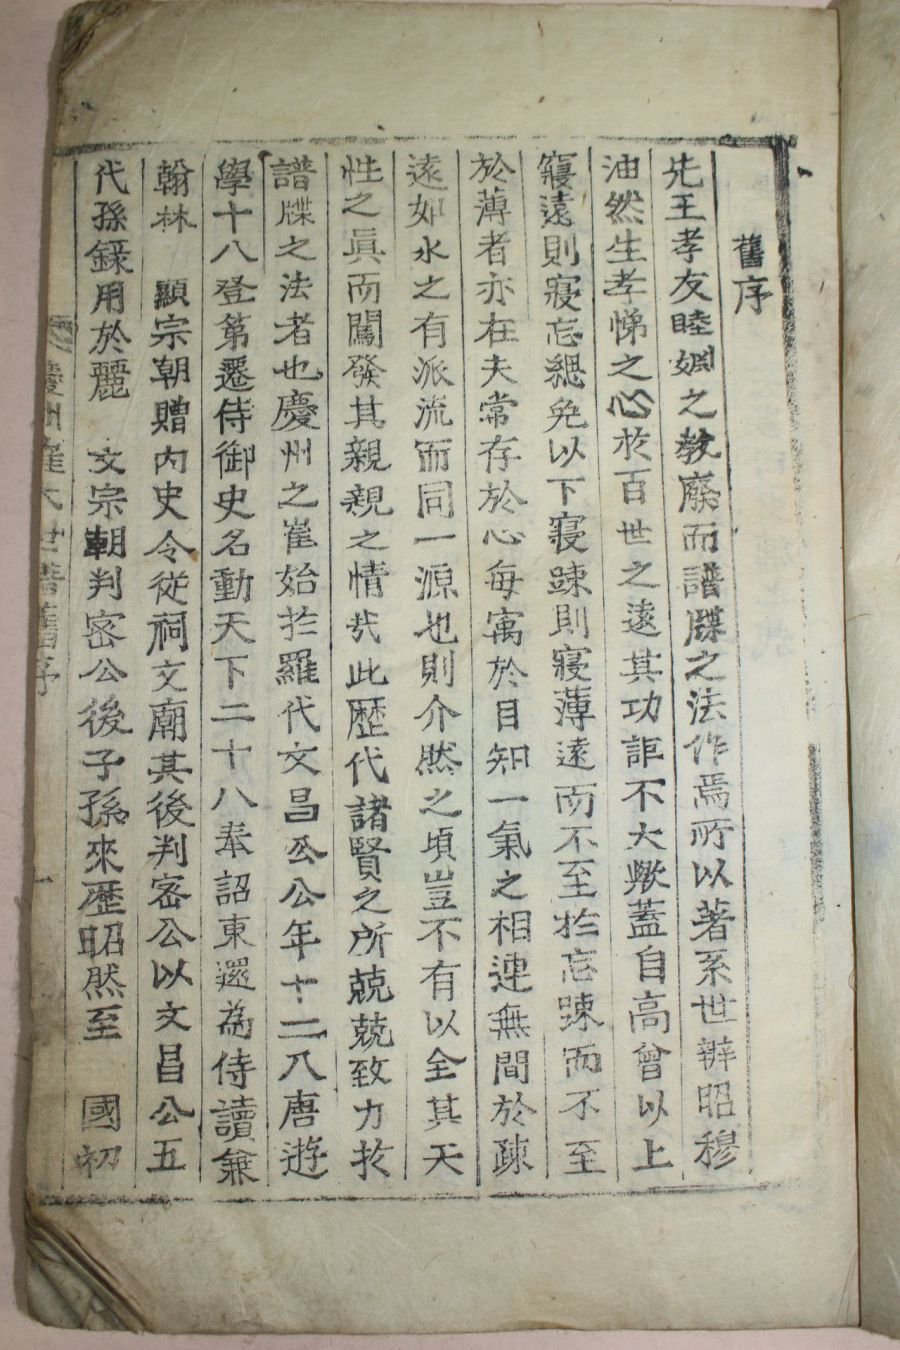 舊序
先王孝友睦婣之敎廢而譜牒之法作焉所以著系世辨昭穆
油然生孝悌之心於百世之遠其功詎不大歟蓋自高曾以上
寢遠則寢忘緦免以下寢踈則寢薄遠而不至於忘踈而不至
於薄者亦在夫常存於心每寓於目知一氣之相連無間於踈
遠如水之有派流而同一源也則介然之頃豈不有以全其天
性之眞而闖發其親親之情哉此歷代諸賢之所兢兢致力於
譜牒之法者也慶州之崔始於羅代文昌公公年十二入唐遊
學十八登第遷侍御史名動天下二十八奉詔東還爲侍讀兼
翰林 顯宗朝贈內史令從祠文廟其後判密公以文昌公五
代孫錄用於麗 文宗朝判密公後子孫來歷昭然至 國初
慶州崔氏世譜舊序 一